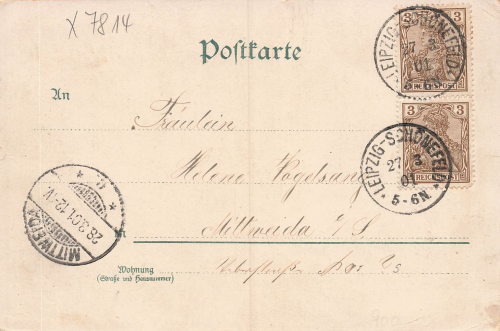 X 7814
Postkarte
3 3
REICHSPOST
LEIPZIG-SCHÖNEFELD
27 3
01
5-6N.
3 3
REICHSPOST
LEIPZIG-SCHÖNEFELD
27 3
01
5-6N.
An
Fräulein
Helene Vogelsang
Mittweida i/S
in
MITTWEIDA
28.3.01.12-V.
Wohnung
(Straße und Hausnummer)